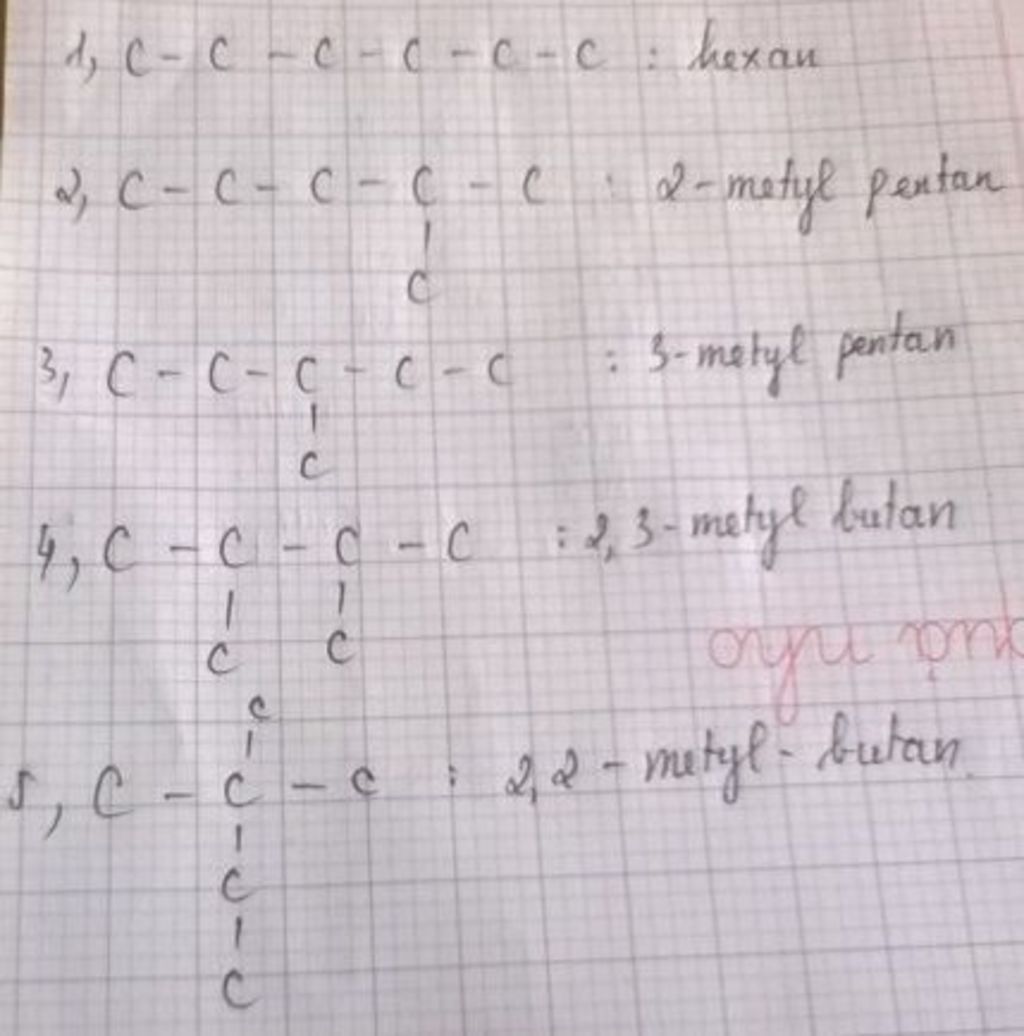 1, C - C - C - C - C - C : hexan
2, C - C - C - C - C : 2-metyl pentan
|
C
3, C - C - C - C - C : 3-metyl pentan
|
C
4, C - C - C - C : 2, 3-metyl butan
| |
C C
C
|
5, C - C - C : 2,2 - metyl - butan
|
C
|
C